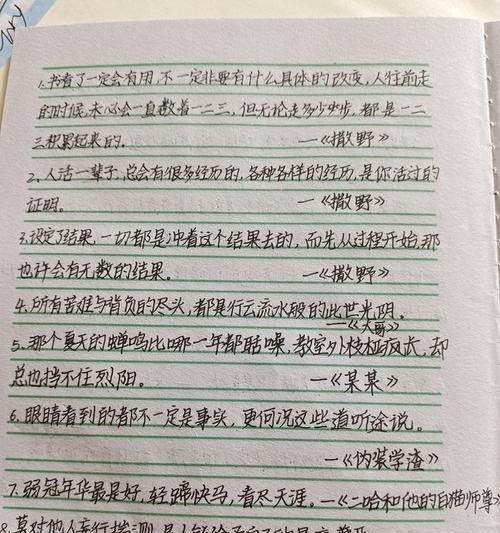 1.书看了一定会有用,不一定非要有什么具体的改变,人往前走
的时候,未必会一直数着一二三,但无论走多少步,都是一二
三积累起来的。 —《撒野》
2、人活一辈子,总会有很多经历的,各种各样的经历,是你活过的
证明。 —《撒野》
3.设定了结果,一切都是冲着这个结果去的,而先从过程开始,那
也许会有无数的结果。 —《撒野》
4.所有苦难与背负的尽头,都是行云流水般的此世光阴。
—《大哥》
5、那个夏天的蝉鸣比哪一年都聒噪,教室外枝桠疯长,却
总也挡不住烈阳。 —《某某》
6、眼睛看到的都不一定是事实,更何况这些道听途说。
—《伪装学渣》
7.弱冠年华最是好,轻蹄快马,看尽天涯。—《二哈和他的白猫师尊》
8.莫对他人妄行揣测